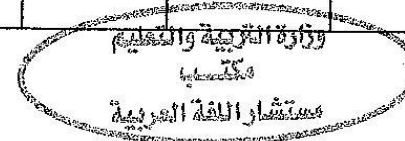 وزارة التربية والتعليم
مكتب
مستشار اللغة العربية